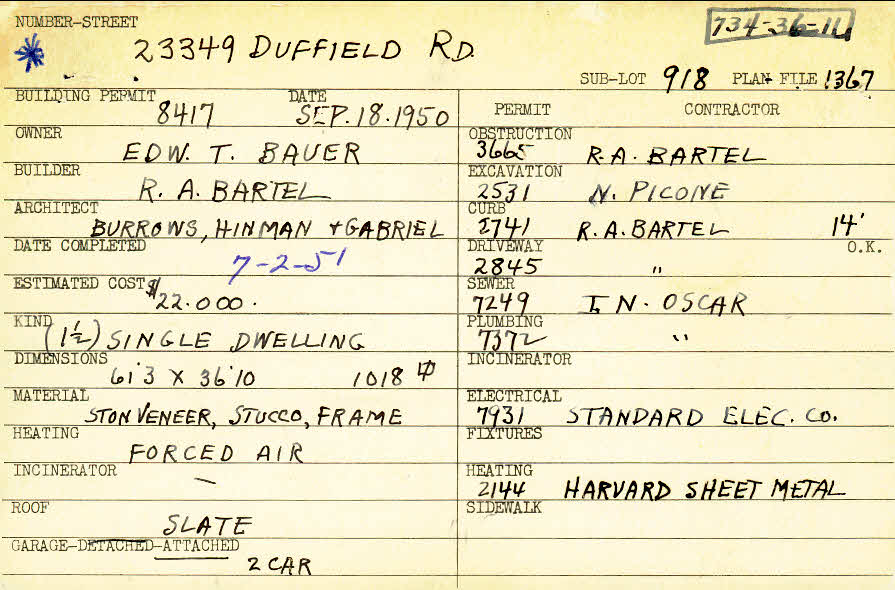 NUMBER-STREET
734-36-11
23349 DUFFIELD RD.
SUB-LOT 918 PLAN FILE 1367
BUILDING PERMIT DATE
8417 SEP. 18. 1950
OWNER
EDW. T. BAUER
BUILDER
R. A. BARTEL
ARCHITECT
BURROWS, HINMAN + GABRIEL
DATE COMPLETED
7-2-51
ESTIMATED COST $
22.000.
KIND
(1½) SINGLE DWELLING
DIMENSIONS
61'3 X 36'10 1018
MATERIAL
STON VENEER, STUCCO, FRAME
HEATING
FORCED AIR
INCINERATOR
—
ROOF
SLATE
GARAGE-DETACHED-ATTACHED
2 CAR
PERMIT CONTRACTOR
OBSTRUCTION
3665 R. A. BARTEL
EXCAVATION
2531 N. PICONE
CURB
2741 R. A. BARTEL 14'
DRIVEWAY O.K.
2845 "
SEWER
7249 I. N. OSCAR
PLUMBING
7372 "
INCINERATOR
ELECTRICAL
7931 STANDARD ELEC. CO.
FIXTURES
HEATING
2144 HARVARD SHEET METAL
SIDEWALK